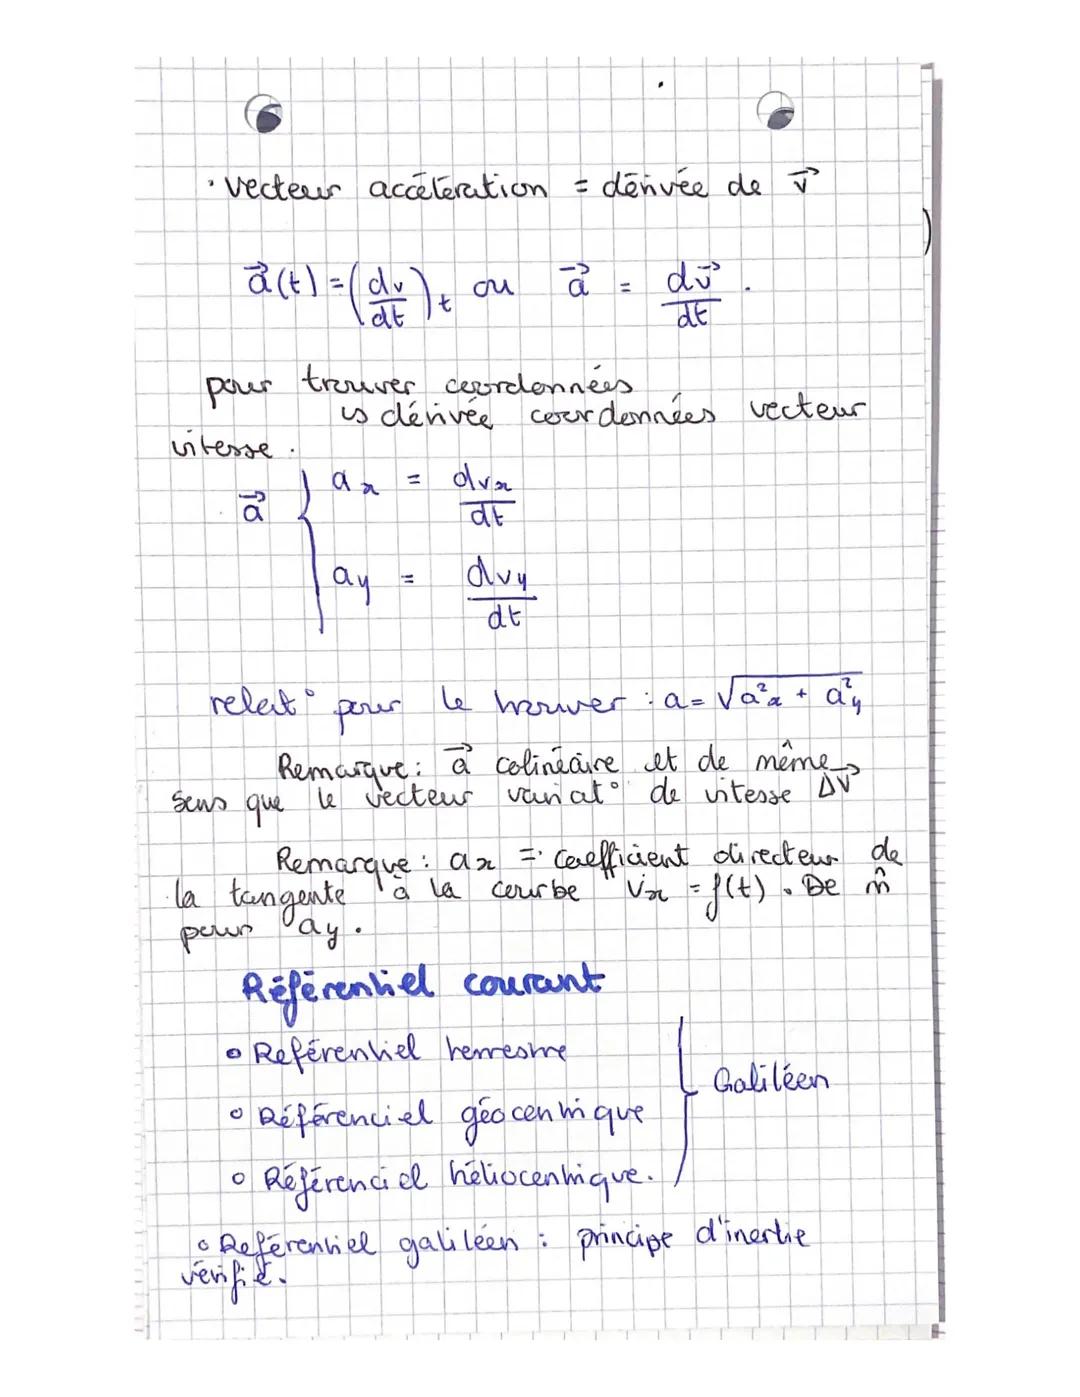 · vecteur accélération = dérivée de v⃗
a⃗(t) = (dv/dt)t ou a⃗ = dv⃗/dt.
pour trouver coordonnées
↳ dérivée coordonnées vecteur
vitesse.
a⃗ { ax = dvx/dt
ay = dvy/dt
relat° pour le trouver : a = √(a²x + a²y)
Remarque : a⃗ colinéaire et de même
sens que le vecteur variat° de vitesse Δv⃗
Remarque : ax = coefficient directeur de
la tangente à la courbe vx = f(t). De m̂
pour ay.
Référentiel courant
• Référentiel terrestre
• Référenciel géocentrique
• Référenciel héliocentrique.
} Galiléen
• Référentiel galiléen : principe d'inertie
vérifié.